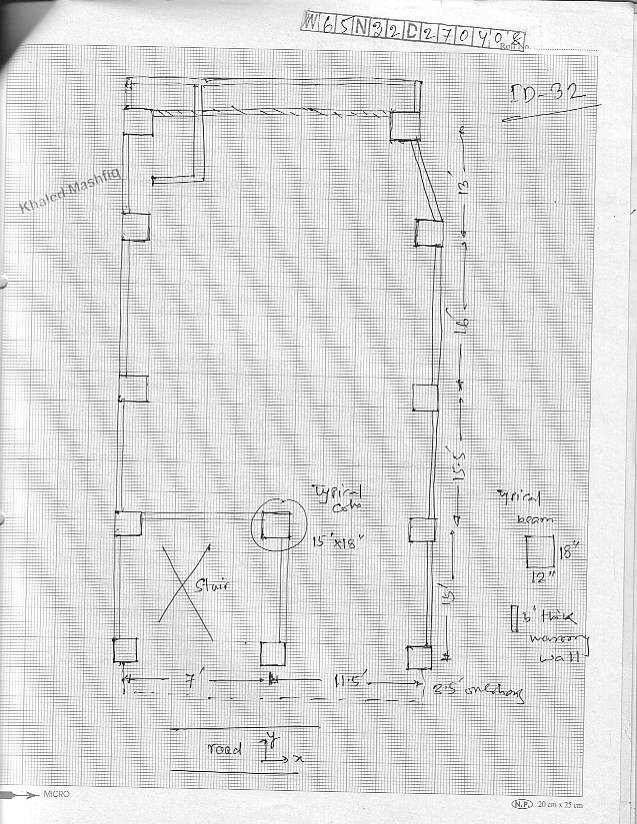 W65N32D270408
Roll No.
ID-32
Khaled Mashfiq
13'
16'
15.5'
Typical
15"x18"
Typical
beam
18"
12"
Stair
15'
5" thick
masonry
wall
7'
11.5'
3.5' overhang
road
y
x
MICRO
N.P. 20 cm x 25 cm